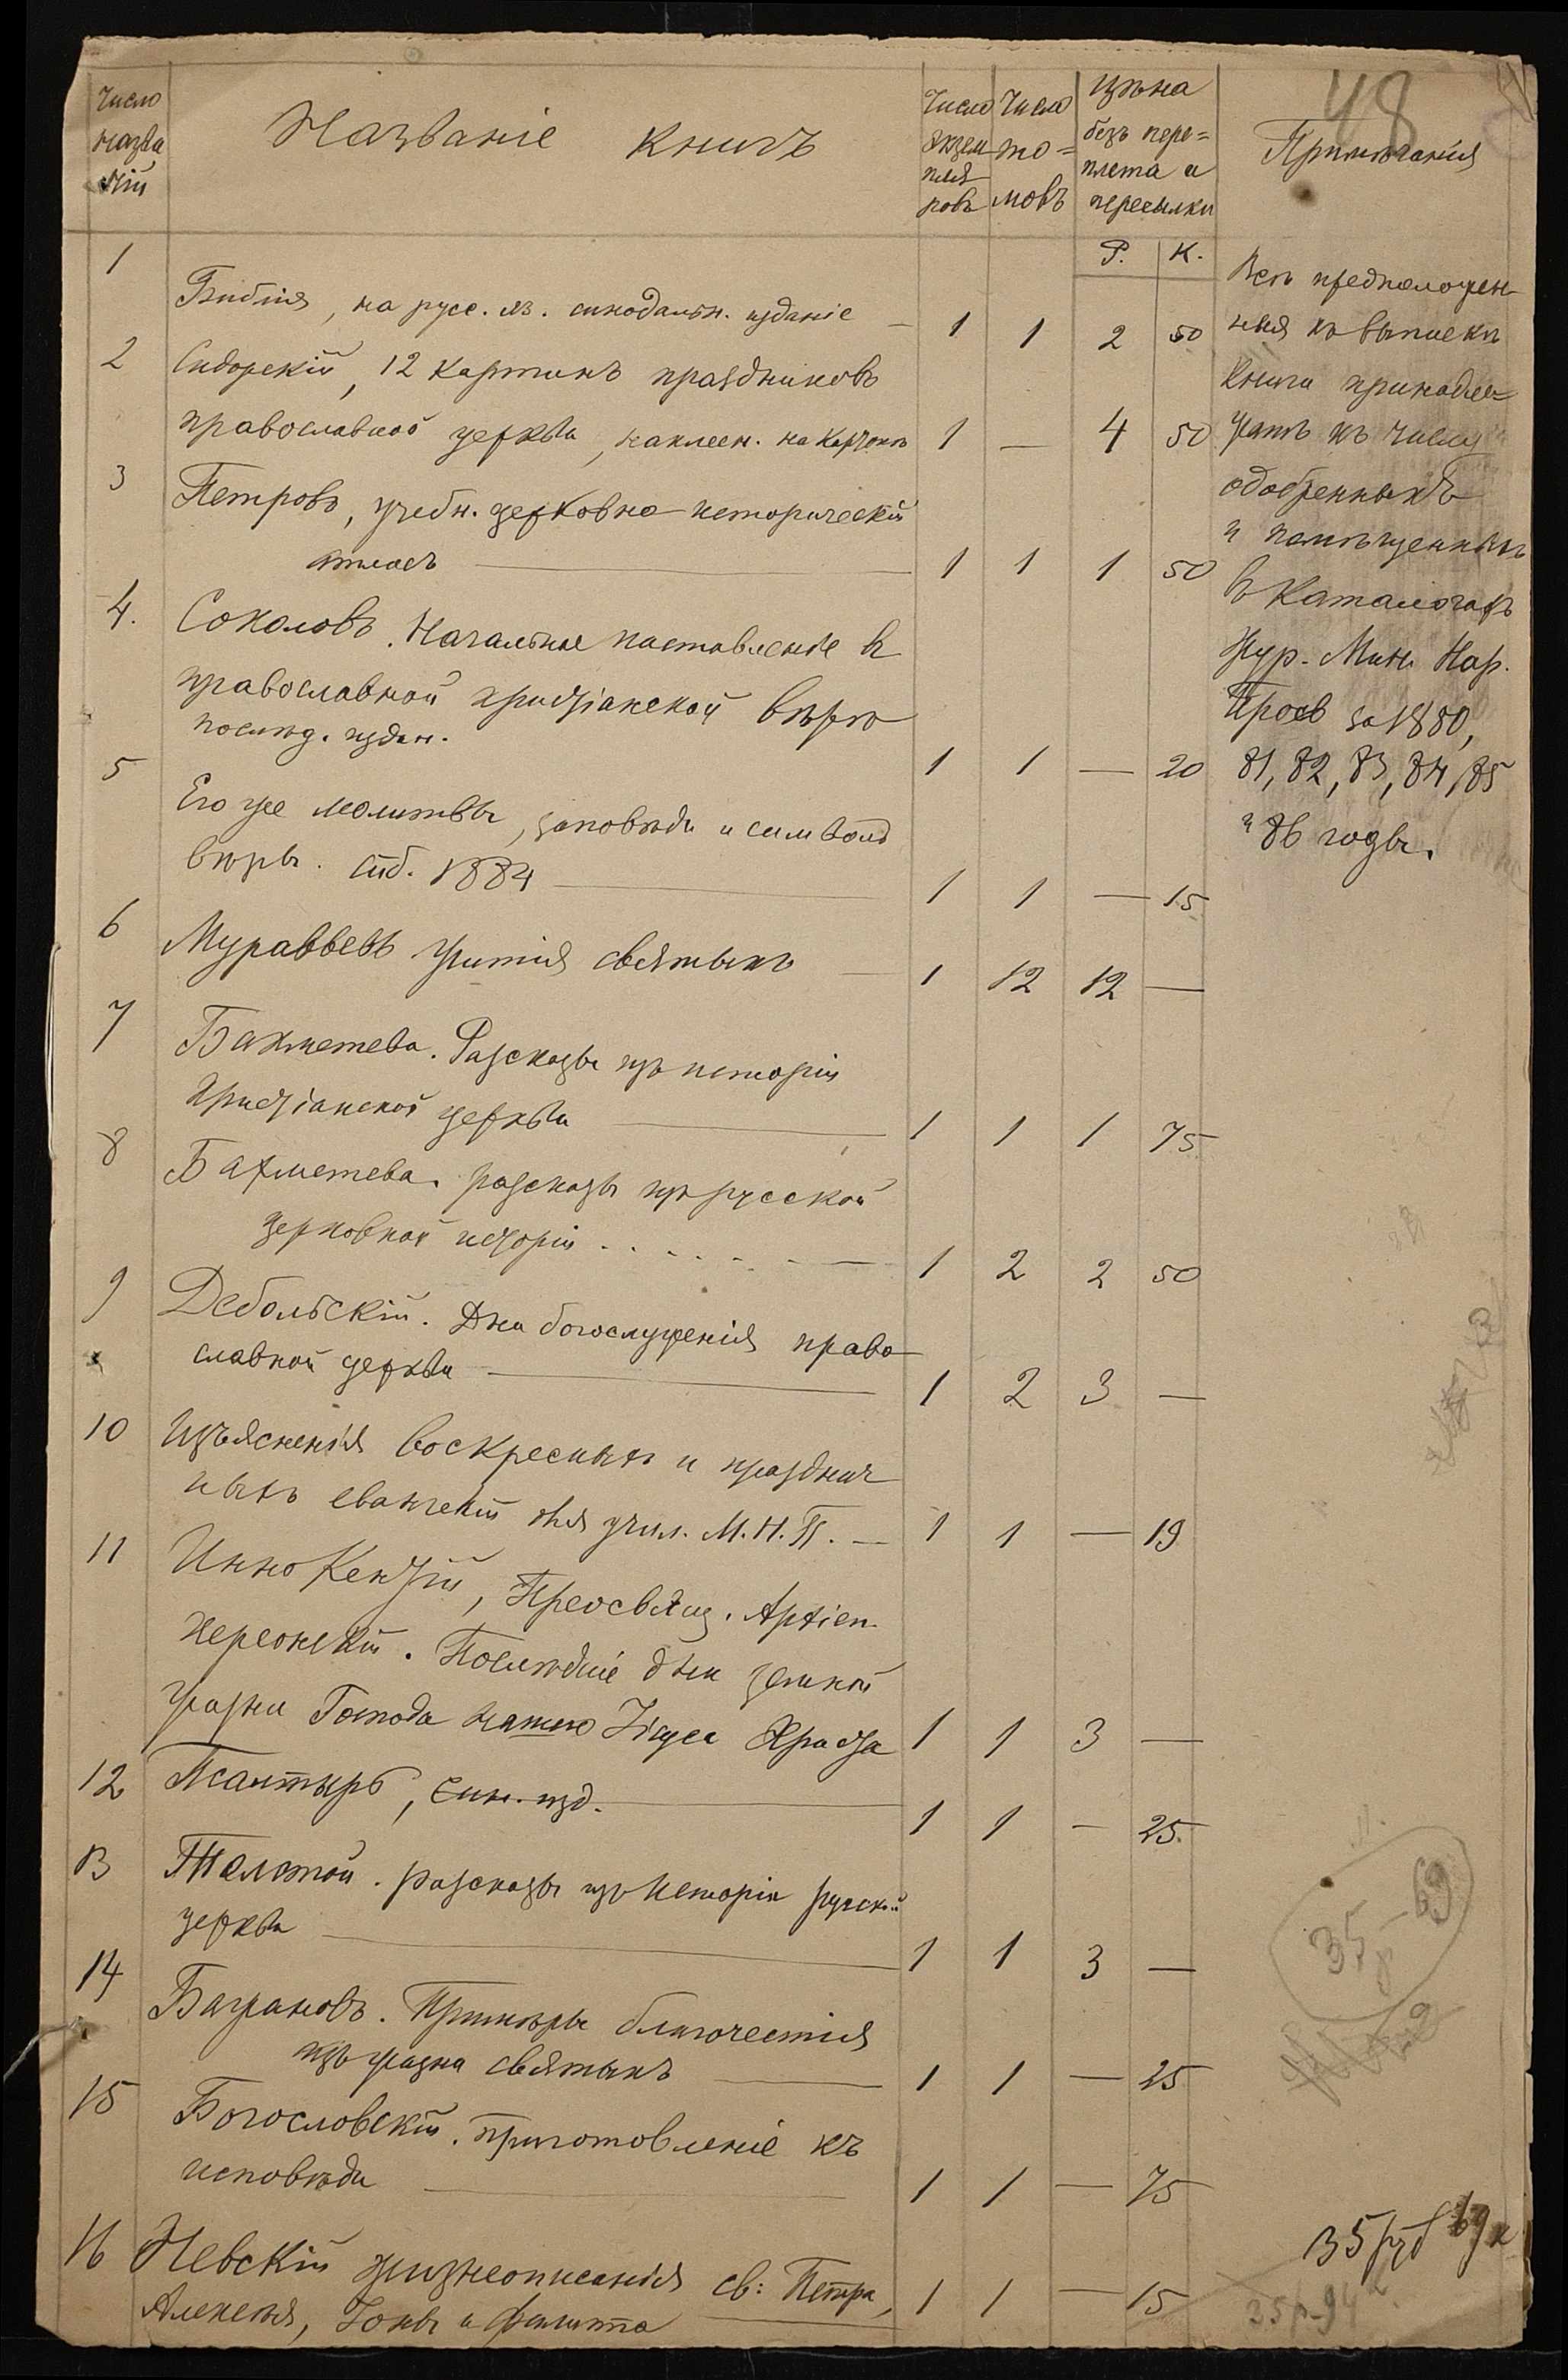 48
Число назва ній
Названіе книгъ
Число экзем пляровъ
Число то= мовъ
Цѣна безъ пере= плета и пересылки
Примѣчанія
Р. К.
1 Библія, на русс. яз. синодальн. изданіе — 1 1 2 50
2 Сидорскій, 12 картинъ праздниковъ
православной церкви, наклеен. на картонъ 1 — 4 50
3 Петровъ, учебн. церковно-историческій
атласъ — 1 1 1 50
4. Соколовъ. Начальное наставленіе въ
православной христіанской вѣрѣ
послѣд. издан. 1 1 — 20
5 Его же молитвы, заповѣди и символъ
вѣры. Спб. 1884 — 1 1 — 15
6 Муравьевъ Житія святыхъ — 1 12 12 —
7 Бахметева. Разсказы изъ исторіи
христіанской церкви — 1 1 1 75
8 Бахметева. разсказы изъ русской
церковной исторіи . . . . . . — 1 2 2 50
9 Дебольскій. Дни богослуженія право
славной церкви — 1 2 3 —
10 Изъясненія воскресныхъ и празднич
ныхъ евангелій для учил. М. Н. П. — 1 1 — 19
11 Иннокентій, Преосвящ. Архіеп.
Херсонскій. Послѣдніе дни земной
жизни Господа нашего Іисуса Христа 1 1 3 —
12 Псалтырь, син. изд. — 1 1 — 25
13 Толстой. разсказы изъ Исторіи русской
церкви — 1 1 3 —
14 Баграновъ. Примѣры благочестія
изъ жизни святыхъ — 1 1 — 25
15 Богословскій. приготовленіе къ
исповѣди — 1 1 — 75
16 Невскій жизнеописанія св: Петра,
Алексѣя, Іоны и Филиппа — 1 1 — 15
Всѣ предположен
ныя къ выпискѣ
Книги принадле=
жатъ къ числу
одобренныхъ
и помѣщенныхъ
въ Каталогахъ
Жур. Мин. Нар.
Просв за 1880,
81, 82, 83, 84, 85
и 86 годы.
35 р — 69
35 руб 69 к
35 р. 94 к